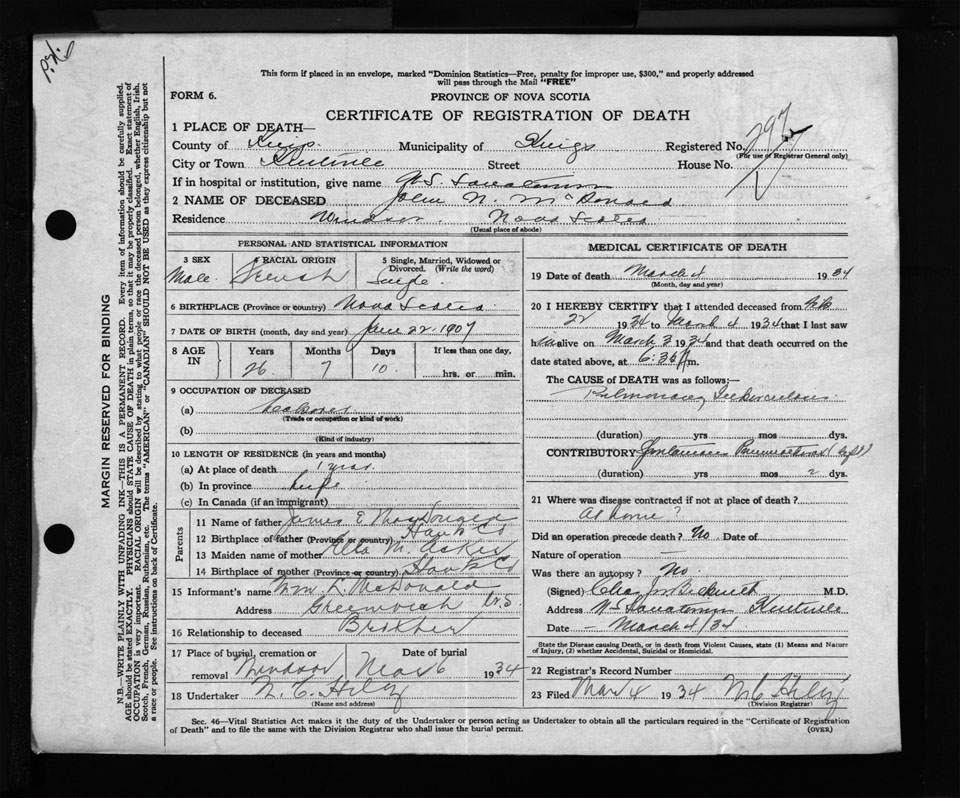 This form if placed in an envelope, marked "Dominion Statistics—Free, penalty for improper use, $300," and properly addressed
will pass through the Mail "FREE"
FORM 6.
PROVINCE OF NOVA SCOTIA
CERTIFICATE OF REGISTRATION OF DEATH
1 PLACE OF DEATH—
County of Kings Municipality of Kings Registered No. 297
(For use of Registrar General only)
City or Town Kentville Street House No.
If in hospital or institution, give name N.S. Sanatorium
2 NAME OF DECEASED John N. McDonald
Residence Windsor Nova Scotia
(Usual place of abode)
PERSONAL AND STATISTICAL INFORMATION
3 SEX Male
4 RACIAL ORIGIN
5 Single, Married, Widowed or Divorced. (Write the word) Single
6 BIRTHPLACE (Province or country) Nova Scotia
7 DATE OF BIRTH (month, day and year) 22-1907
8 AGE IN Years Months Days If less than one day,
26 7 10 hrs. or min.
9 OCCUPATION OF DECEASED
(a) Laborer
(Trade or occupation or kind of work)
(b)
(Kind of industry)
10 LENGTH OF RESIDENCE (in years and months)
(a) At place of death
(b) In province Life
(c) In Canada (if an immigrant)
Parents
11 Name of father James E MacDonald
12 Birthplace of father (Province or country) Hants Co
13 Maiden name of mother M.
14 Birthplace of mother (Province or country) Hants Co
15 Informant's name Wm K. McDonald
Address Greenwich N.S.
16 Relationship to deceased Brother
17 Place of burial, cremation or removal Windsor
Date of burial Mar 6 1934
18 Undertaker
(Name and address)
MEDICAL CERTIFICATE OF DEATH
19 Date of death March 4 1934
(Month, day and year)
20 I HEREBY CERTIFY that I attended deceased from Feb
22 1934 to March 4 1934 that I last saw
him alive on March 3 1934 and that death occurred on the
date stated above, at 6:35 A m.
The CAUSE of DEATH was as follows:—
Pulmonary Tuberculosis
(duration) yrs mos dys.
CONTRIBUTORY Spontaneous Pneumothorax (left)
(duration) yrs mos 2 dys.
21 Where was disease contracted if not at place of death?
At home?
Did an operation precede death? No Date of
Nature of operation —
Was there an autopsy? No.
(Signed) M.D.
Address NS Sanatorium Kentville
Date — March 4/34
State the Disease causing Death, or in death from Violent Causes, state (1) Means and
Nature of Injury, (2) whether Accidental, Suicidal or Homicidal.
22 Registrar's Record Number
23 Filed Mar 4 1934
(Division Registrar)
Sec. 46—Vital Statistics Act makes it the duty of the Undertaker or person acting as Undertaker to obtain all the particulars required in the "Certificate of Registration
of Death" and to file the same with the Division Registrar who shall issue the burial permit.
(OVER)
MARGIN RESERVED FOR BINDING
N.B.—WRITE PLAINLY WITH UNFADING INK—THIS IS A PERMANENT RECORD. Every item of information should be carefully supplied.
AGE should be stated EXACTLY. PHYSICIANS should STATE CAUSE OF DEATH in plain terms, so that it may be properly classified. Exact statement of
OCCUPATION is very important. RACIAL ORIGIN will be described by stating to what people or race the deceased person belonged, whether English, Irish,
Scotch, French, German, Russian, Ruthenian, etc. The terms "AMERICAN" or "CANADIAN" SHOULD NOT BE USED as they express citizenship but not
a race or people. See instructions on back of Certificate.